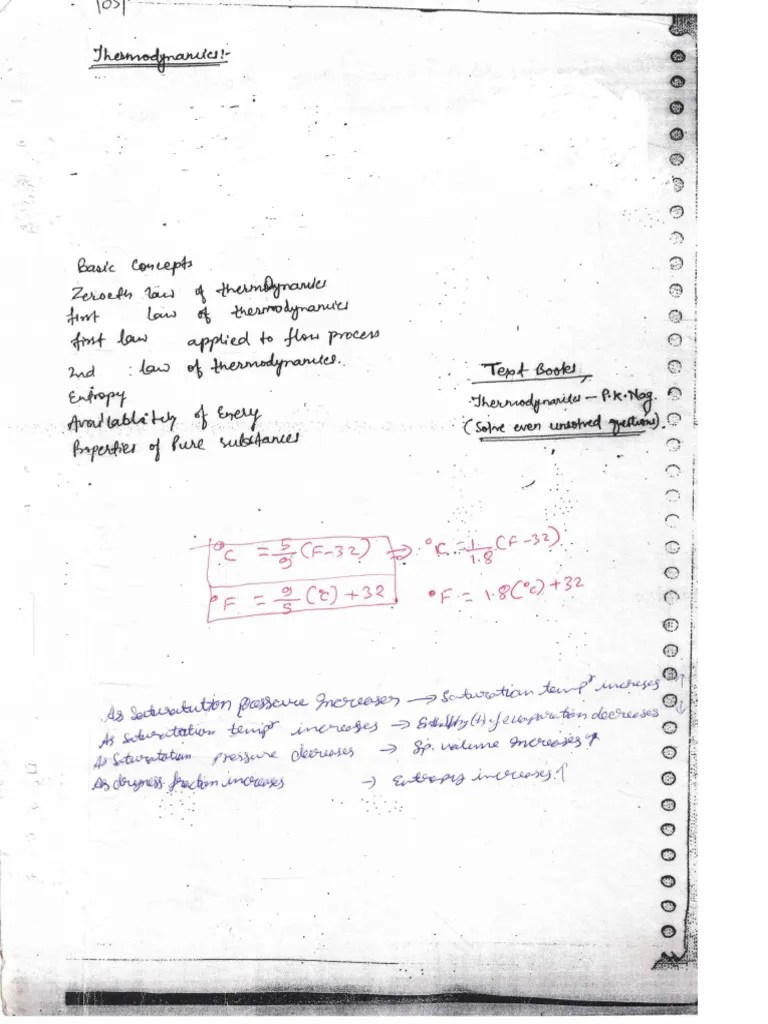 Thermodynamics:-
Basic Concepts
Zeroeth law of thermodynamics
first law of thermodynamics
first law applied to flow process
2nd law of thermodynamics.
Entropy
Availablity of Energy
Properties of Pure substances
Text Books,
Thermodynamics - P.K. Nag.
(Solve even unsolved questions).
°C = 5/9 (F-32) ⇒ °C = 1/1.8 (F-32)
°F = 9/5 (°c) + 32 °F = 1.8(°c) + 32
As Saturation pressure Increases → Saturation tempr increases ↑
As Saturation tempr increases → Enthalpy of evaporation decreases ↓
As Saturation pressure decreases → Sp. volume Increases ↑
As dryness fraction increases → Entropy increases ↑